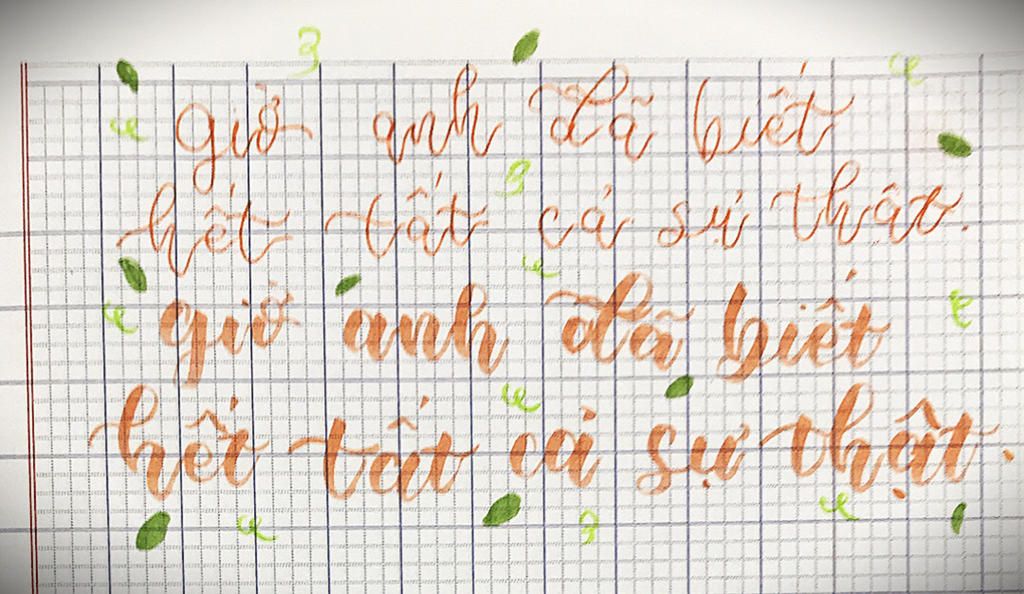 giờ anh đã biết
hết tất cả sự thật.
giờ anh đã biết
hết tất cả sự thật.